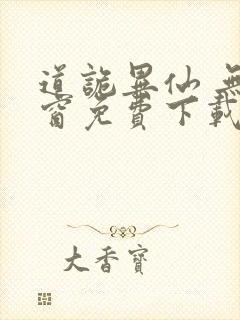 道詭異仙 無
窗免費下載
大香寶